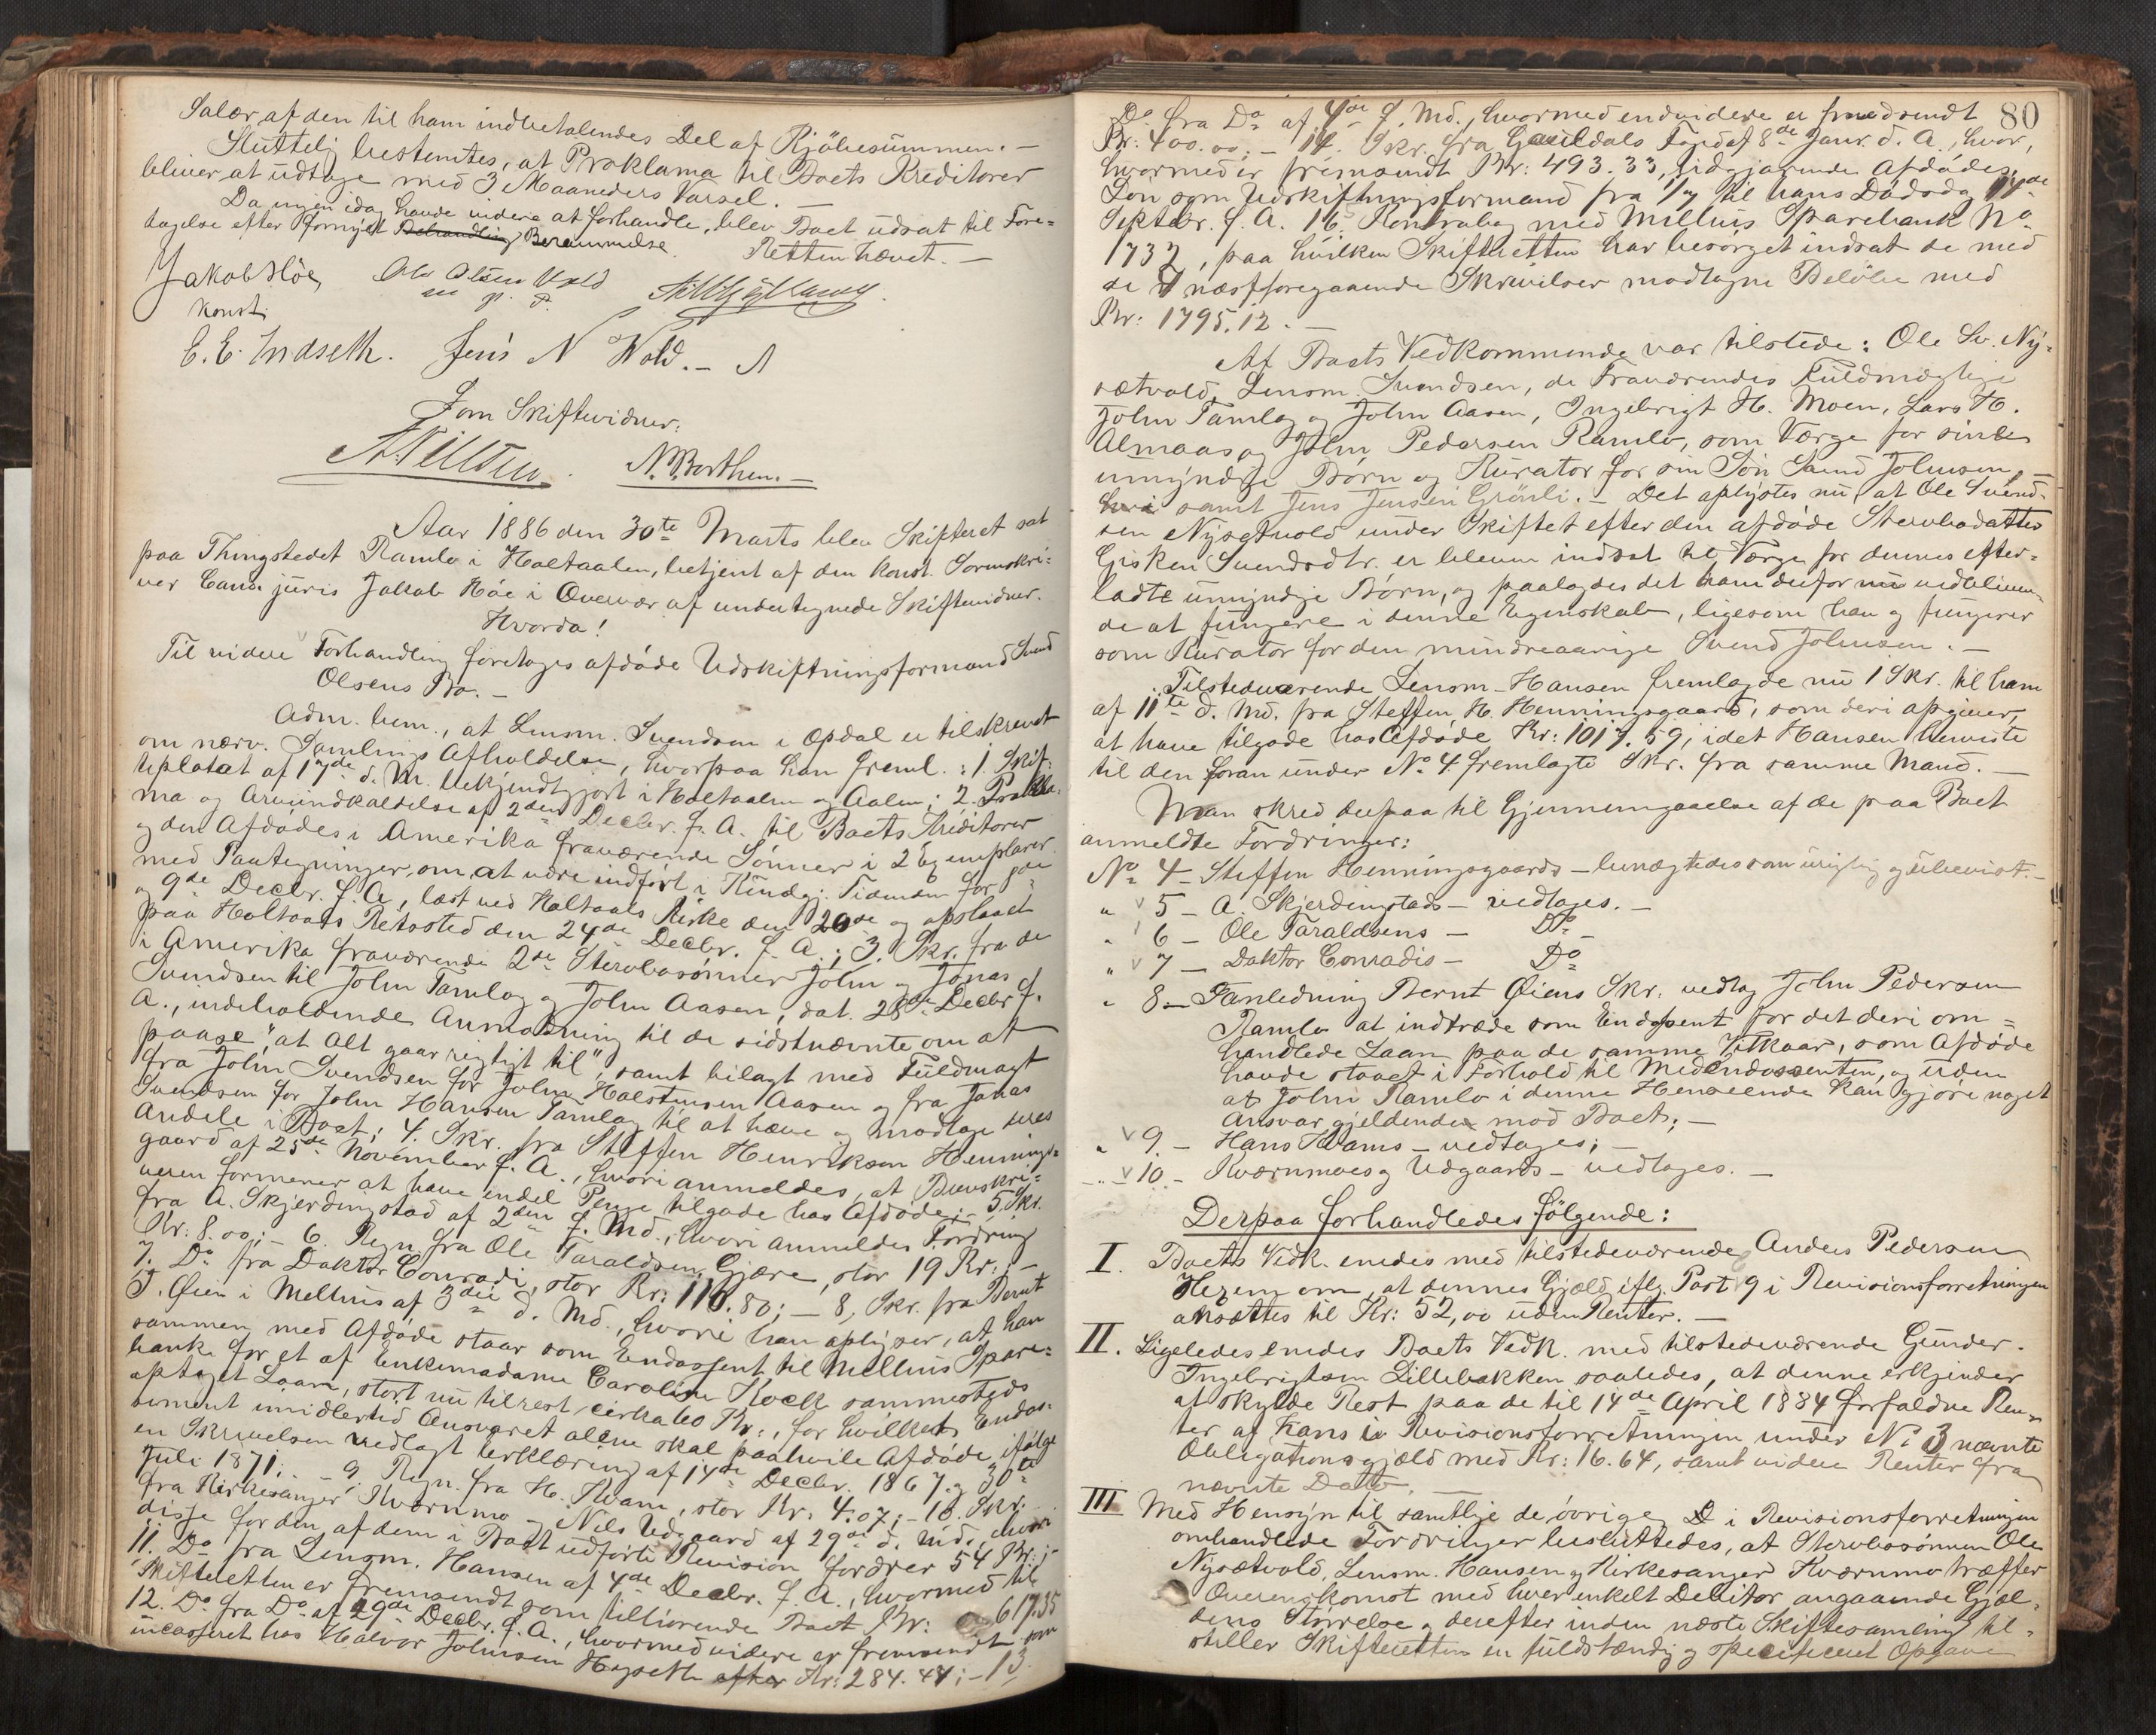 Salær af den til ham indbetalendes Del af Kjöbesummen. –
Sluttelig bestemtes, at Proklama til Boets Kreditorer
bliver at udtage med 3 Maaneders Varsel. –
Da ingen idag havde videre at forhandle, blev Boet udsat til Fore=
tagelse efter fornyet Behandling Berammelse.
Retten hævet. –
Jakob Höe
konst.
Ole Olsen Vold
m. p. P.
E. E. Indseth. Jens N Wold. –
Som Skiftevidner:
N. Borthen. –
Aar 1886 den 30te Marts blev Skifteret sat
paa Thingstedet Ramlo i Holtaalen, betjent af den konst. Sorenskri=
ver Cand. juris Jakob Höe i Overvær af undertegnede Skiftevidner.
Hvorda!
Til videre Forhandling foretoges afdöde Udskiftningsformand Svend
Olsens Bo. –
Adm. bem., at Lensm. Svendsen i Opdal er tilskrevet
om nærv. Samlings Afholdelse, hvorpaa han freml.: 1. Skif=
teplakat af 17de d. M. bekjendtgjort i Holtaalen og Aalen; 2. Prokla=
ma og Arveindkaldelse af 2den Decbr. f. A. til Boets Kreditorer
og den Afdödes i Amerika fraværende Sönner i 2 Exemplarer
med Paategninger, om at være indfört i Kundgj. Tidende for
og 9de Decbr. f. A., læst ved Holtaals Kirke den 20de og opslaaet
paa Holtaals Retssted den 24de Decbr. f. A.; 3. Skr. fra de
i Amerika fraværende 2de Stervbosönner John og Jonas
Svendsen til John Tamlag og John Aasen, dat. 28de Decbr f.
A., indeholdende Anmodning til de sidstnævnte om at
paase, "at Alt gaar rigtigt til", samt bilagt med Fuldmagt
fra John Svendsen for John Halstensen Aasen og fra Jonas
Svendsen for John Hansen Tamlag til at hæve og modtage deres
Andele i Boet; 4. Skr. fra Steffen Henriksen Hennings=
gaard af 25de November f. A., hvori anmeldes, at Brevskri=
veren formener at have endel Penge tilgode hos Afdöde; – 5. Skr.
fra A. Skjerdingstad af 2den f. Md., hvori anmeldes Fordring
Kr: 8.00; – 6. Regn. fra Ole Taraldsen Gjære, stor 19 Kr.; –
7. Do fra Doktor Conradi, stor Kr: 118.80; – 8, Skr. fra Bernt
J. Öien i Melhus af 3die d. Md., hvori han oplyser, at han
sammen med Afdöde staar som Endossent til Melhus Spare=
bank for et af Enkemadame Caroline Koch sammesteds
optaget Laan, stort nu til rest cirka 60 Kr., for hvilket Endos=
sement imidlertid Ansvaret alene skal paahvile Afdöde ifölge
en Skrivelsen vedlagt Erklæring af 14de Decbr. 1867 og 30te
Juli 1871; – 9. Regn. fra H. Kvam, stor Kr. 4.07; – 10. Skr.
fra Kirkesanger Kværnmo og Nils Udgaard af 29de d. Md. hvori
disse for den af dem i Boet udförte Revision fordrer 54 Kr.; –
11. Do fra Lensm. Hansen af 4de Decbr. f. A., hvormed til
Skifteretten er fremsendt som tilhörende Boet Kr: 617.35
12. Do fra Do af 29de Decbr. f. A., hvormed videre er fremsendt som
incasseret hos Halvor Johnsen Hegseth efter Kr: 284.44; – 13.
80
Do fra Do af 4de f. Md., hvormed endvidere er fremsendt
Kr: 400.00; – 14. Skr. fra Guldals Fogd af 8de Janr. d. A., hvor,
hvormed er fremsendt Kr: 493.33, udgjørende Afdödes
Lön som Udskiftningsformand fra 1/7 til hans Dödsdag 17de
Septbr. f. A. 16. Kontrabog med Melhus Sparebank No
1737, paa hvilken Skifteretten har besörget indsat de med
de 4 næstforegaaende Skrivelser modtagne Belöbe med
Kr: 1795.12. –
Af Boets Vedkommende var tilstede: Ole Sv. Ny=
sætvold, Lensm. Svendsen, de Fraværendes Fuldmægtige
John Tamlag og John Aasen, Ingebrigt H. Moen, Lars H.
Almaas og John Pedersen Ramlo, som Værge for sine
umyndige Börn og Kurator for sin Sön Svend Johnsen, –
samt Jens Jensen Grönli. – Det oplystes nu, at Ole Svend=
sen Nysætvold under Skiftet efter den afdöde Stervbodatter
Gisken Svendsdtr. er bleven indsat til Værge for dennes efter=
ladte umyndige Börn, og paalagdes det ham derfor nu vedbliven=
de at fungere i denne Egenskab, ligesom han og fungerer
som Kurator for den mindreaarige Svend Johnsen. –
Tilstedeværende Lensm. Hansen fremlagde nu 1 Skr. til ham
af 11te d. Md. fra Steffen H. Henningsgaard, som deri opgiver,
at have tilgode hos Afdöde Kr: 1017.59, idet Hansen henviste
til den foran under No 4 fremlagte Skr. fra samme Mand. –
Man skred derpaa til Gjennemgaaelse af de paa Boet
anmeldte Fordringer:
No 4 – Steffen Henningsgaards – benægtedes som urigtig og ubevist. –
" 5 – A. Skjerdingstads – vedtages. –
" 6 – Ole Taraldsens – Do –
" 7 – Doktor Conradis – Do
" 8 – I Anledning Bernt Öiens Skr. vedtog John Pedersen
Ramlo at indtræde som Endossent for det deri om=
handlede Laan paa de samme Vilkaar, som Afdöde
havde staaet i Forhold til Medendossenten, og uden
at John Ramlo i denne Henseende kan gjöre noget
Ansvar gjeldende mod Boet; –
" 9. – Hans Kvams – vedtages; –
" 10. – Kværnmoes og Udgaards – vedtages. –
Derpaa forhandledes fölgende:
I. Boets Vedk. enedes med tilstedeværende Anders Pedersen
om, at dennes Gjæld iflg. Post 9 i Revisionsforretningen
ansættes til Kr: 52,00 uden Renter. –
II. Ligeledes enedes Boets Vedk. med tilstedeværende Gunder
Ingebrigtsen Lillebakken saaledes, at denne erkjender
at skylde Rest paa de til 14de April 1884 forfaldne Ren=
ter af hans i Revisionsforretningen under No 3 nævnte
Obligationsgjæld med Kr: 16.64, samt videre Renter fra
nævnte Dato. –
III Med Hensyn til samtlige de övrige D i Revisionsforretningen
omhandlede Fordringer besluttedes, at Stervbosönnen Ole
Nysætvold, Lensm. Hansen og Kirkesanger Kværnmo træffer
Overenskomst med hver enkelt Debitor angaaende Gjæl=
dens Störrelse og derefter inden næste Skiftesamling til=
stiller Skifteretten en fuldstændig og specificeret Opgave